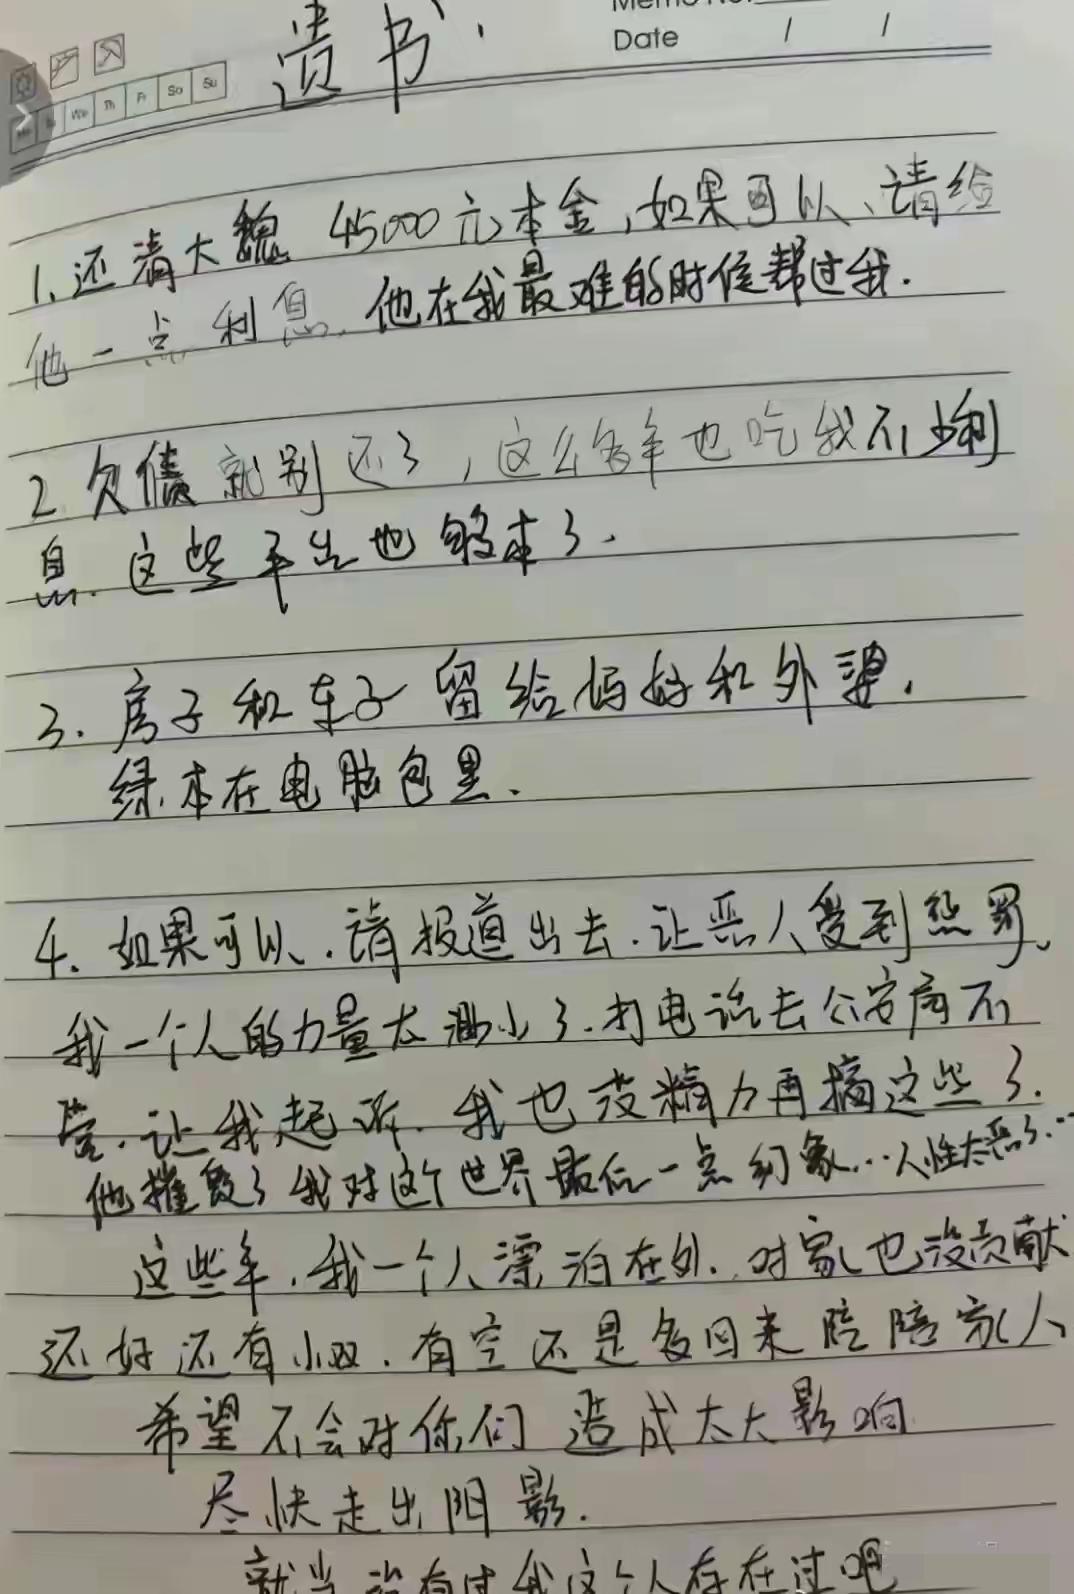 Memo No.
Date / /
Mo Tu We Th Fr Sa Su
遗书
1. 还清大魏 45000元本金,如果可以、请给
他一点利息. 他在我最难的时候帮过我.
2. 欠债就别还了,这么多年也吃我不少利
息. 这些年生也够本了.
3. 房子和车子留给妈妈和外婆.
绿本在电脑包里.
4. 如果可以.请报道出去.让恶人受到惩罚、
我一个人的力量太渺小了.打电话去公安局不
管.让我起诉.我也没精力再搞这些了.
他摧毁了我对这个世界最后一点幻象...人性太恶了...
这些年.我一个人漂泊在外.对家也没贡献
还好还有小双.有空还是多回来陪陪家人
希望不会对你们造成太大影响
尽快走出阴影.
就当没有过我这个人存在过吧